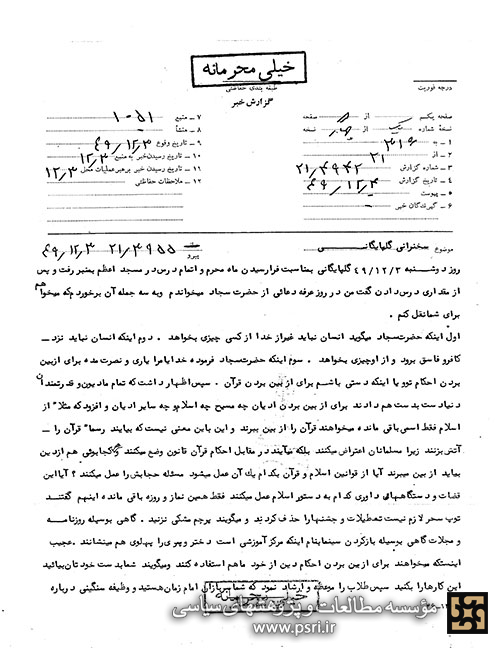 خیلی محرمانه
طبقه بندی حفاظتی
درجه فوریت
گزارش خبر
صفحه یکم از صفحه
نسخه شماره یک از نسخه
۱ – به ۳۱۶
۲ – از ۲۱
۳ – شماره گزارش
۴ – تاریخ گزارش
۵ – پیوست
۶ – گیرندگان خبر
۷ – منبع ۱۰۵۱
۸ – منشأ
۹ – تاریخ وقوع ۴۹/۱۲/۳
۱۰ – تاریخ رسیدن خبر به منبع ۱۲/۳
۱۱ – تاریخ رسیدن خبر برهبر عملیات محل ۱۲/۳
۱۲ – ملاحظات حفاظتی
موضوع سخنرانی گلپایگانی
پیرو ۲۱/۴۹۵۵ ۴۹/۱۲/۳
روز دوشنبه ۴۹/۱۲/۳ گلپایگانی بمناسبت فرارسیدن ماه محرم و اتمام درس در مسجد اعظم بمنبر رفت و پس
از مقداری درس دادن گفت من در روز عرفه دعائی از حضرت سجاد میخواندم و به سه جمله آن برخوردم که میخواهم
برای شما نقل کنم .
اول اینکه حضرت سجاد میگوید انسان نباید غیر از خدا از کسی چیزی بخواهد . دوم اینکه انسان نباید نزد
کافر و فاسق برود و از او چیزی بخواهد . سوم اینکه حضرت سجاد فرموده خدایا مرا یاری و نصرت مده برای ازبین
بردن احکام تو و یا اینکه دستی باشم برای از بین بردن قرآن . سپس اظهار داشت که تمام مادیون و قدرتمندان
دنیا دست بدست هم دادند برای از بین بردن ادیان چه مسیح چه اسلام و چه سایر ادیان و افزود که مثلا از
اسلام فقط اسمی باقی مانده میخواهند قرآن را از بین ببرند و این باین معنی نیست که بیایند رسماً قرآن را
آتش بزنند زیرا مسلمانان اعتراض میکنند بلکه میآیند در مقابل احکام قرآن قانون وضع میکنند و کجا بوئی هم ازدین
بیاید از بین میبرند آیا از قوانین اسلام و قرآن بکدام یک آن عمل میشود مسئله حجابش را عمل میکنند ؟ آیا این
قضات و دستگاههای داوری کدام به دستور اسلام عمل میکنند فقط همین نماز و روزه باقی مانده اینهم گفتند
توپ سحر لازم نیست تعطیلات و جشنها را حذف کردند و میگویند پرچم مشکی نزنید . گاهی بوسیله روزنامه
و مجلات گاهی بوسیله بازکردن سینما بنام اینکه مرکز آموزشی است دختر و پسری را پهلوی هم مینشانند . عجیب
اینستکه میخواهند برای از بین بردن احکام دین از خود ما هم استفاده کنند و میگویند شما بدست خودتان بیائید
این کارها را بکنید سپس طلاب را موعظه و ارشاد نمود که شما سربازان امام زمان هستید و وظیفه سنگینی درباره
خیلی محرمانه
مؤسسه مطالعات و پژوهشهای سیاسی
www.psri.ir